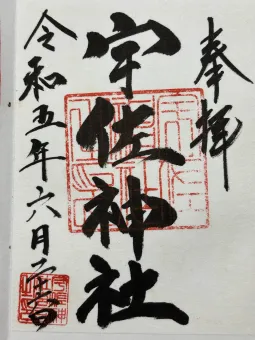 奉拝
宇佐神社
令和五年六月